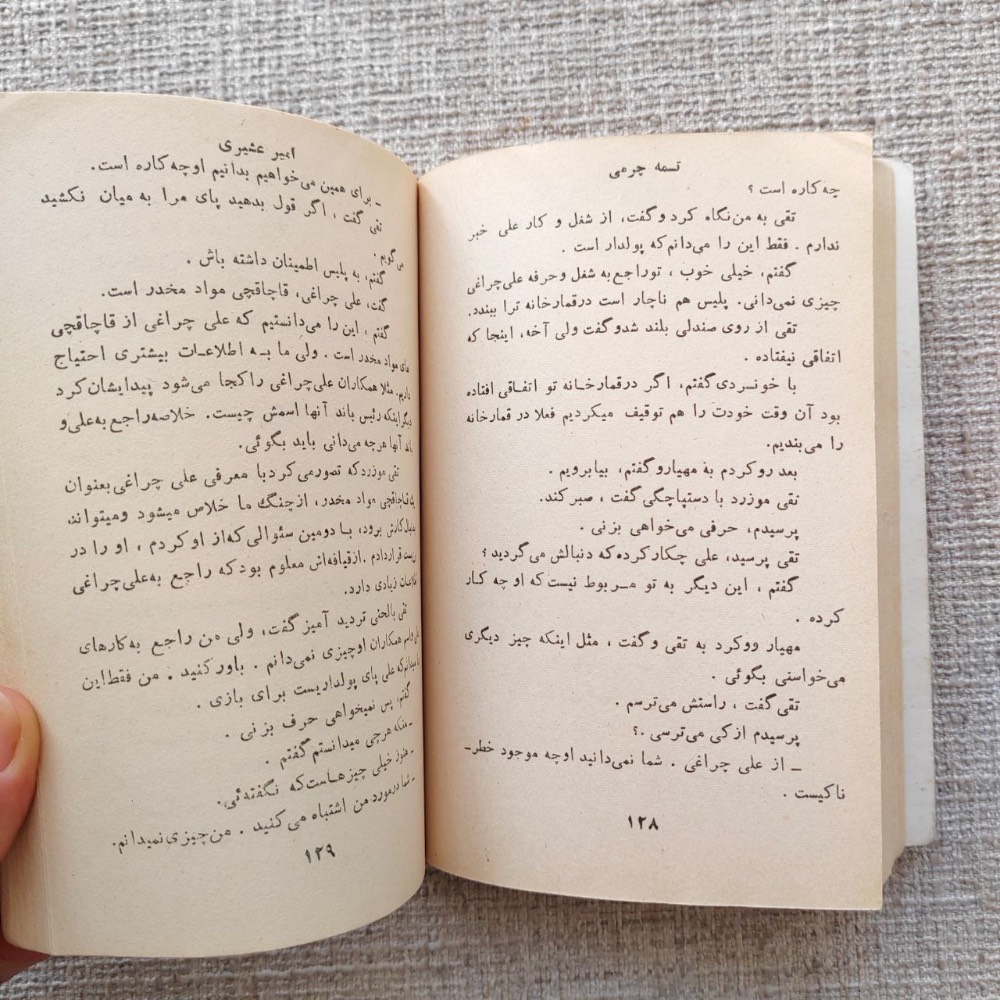 تسمه چرمی
چه‌کاره است ؟
تقی به من‌نگاه کرد و گفت، از شغل و کار علی خبر
ندارم . فقط این را می‌دانم‌که پولدار است .
گفتم، خیلی خوب ، توراجع به شغل و حرفه علی‌چراغی
چیزی نمی‌دانی. پلیس هم ناچار است درقمارخانه ترا ببندد.
تقی از روی صندلی بلند شدو گفت ولی آخه، اینجا که
اتفاقی نیفتاده .
با خونسردی گفتم، اگر درقمارخانه تو اتفاقی افتاده
بود آن وقت خودت را هم توقیف میکردیم فعلا در قمارخانه
را می‌بندیم.
بعد رو کردم به مهیارو گفتم، بیا برویم .
نقی موزرد با دستپاچگی گفت ، صبر کند.
پرسیدم، حرفی می‌خواهی بزنی .
تقی پرسید، علی چکار کرده‌که دنبالش می‌گردید ؟
گفتم ، این دیگر به تو مربوط نیست که او چه کار
کرده .
مهیار وو کرد به تقی و گفت ، مثل اینکه چیز دیگری
می‌خواسنی بگوئی .
تقی گفت ، راستش می‌ترسم .
پرسیدم از کی می‌ترسی .؟
ـ از علی چراغی . شما نمی‌دانید اوچه موجود خطر‌ـ
ناکیست .
۱۲۸
امیر عشیری
ـ برای همین می‌خواهیم بدانیم اوچه‌کاره است.
تقی گفت ، اگر قول بدهید پای مرا به میان نکشید
می‌گویم .
گفتم، به پلیس اطمینان داشته باش .
گفت، علی چراغی، قاچاقچی مواد مخدر است.
گفتم ، این را می‌دانستیم که علی چراغی از قاچاقچی
های مواد مخدر است . ولی ما به اطلاعات بیشتری احتیاج
داریم. مثلا همکاران علی‌چراغی را کجا می‌شود پیدایشان کرد
دیگر اینکه رئیس باند آنها اسمش چیست. خلاصه راجع به‌علی‌و
باند آنها هرچه می‌دانی باید بگوئی.
نقی موزرد که تصور می‌کرد با معرفی علی چراغی بعنوان
قاچاقچی مواد مخدر، از چنگ ما خلاص میشود ومیتواند
کارش برود، با دومین سئوالی که‌از او کردم ، او را در
قرار دادم . از قیافه‌اش معلوم بود که راجع به‌علی‌چراغی
زیادی دارد.
تقی بالحنی تردید آمیز گفت، ولی من راجع به‌کارهای
همکاران اوچیزی نمی‌دانم . باور کنید . من فقط‌این
میدانم‌که علی پای پولداریست برای بازی .
گفتم، پس نمیخواهی حرف بزنی .
ـ منکه هرچی میدانستم گفتم .
ـ هنوز خیلی چیزهاست‌که نگفته‌ئی.
ـ شما درمورد من اشتباه می‌کنید . من‌چیزی نمیدانم.
۱۲۹